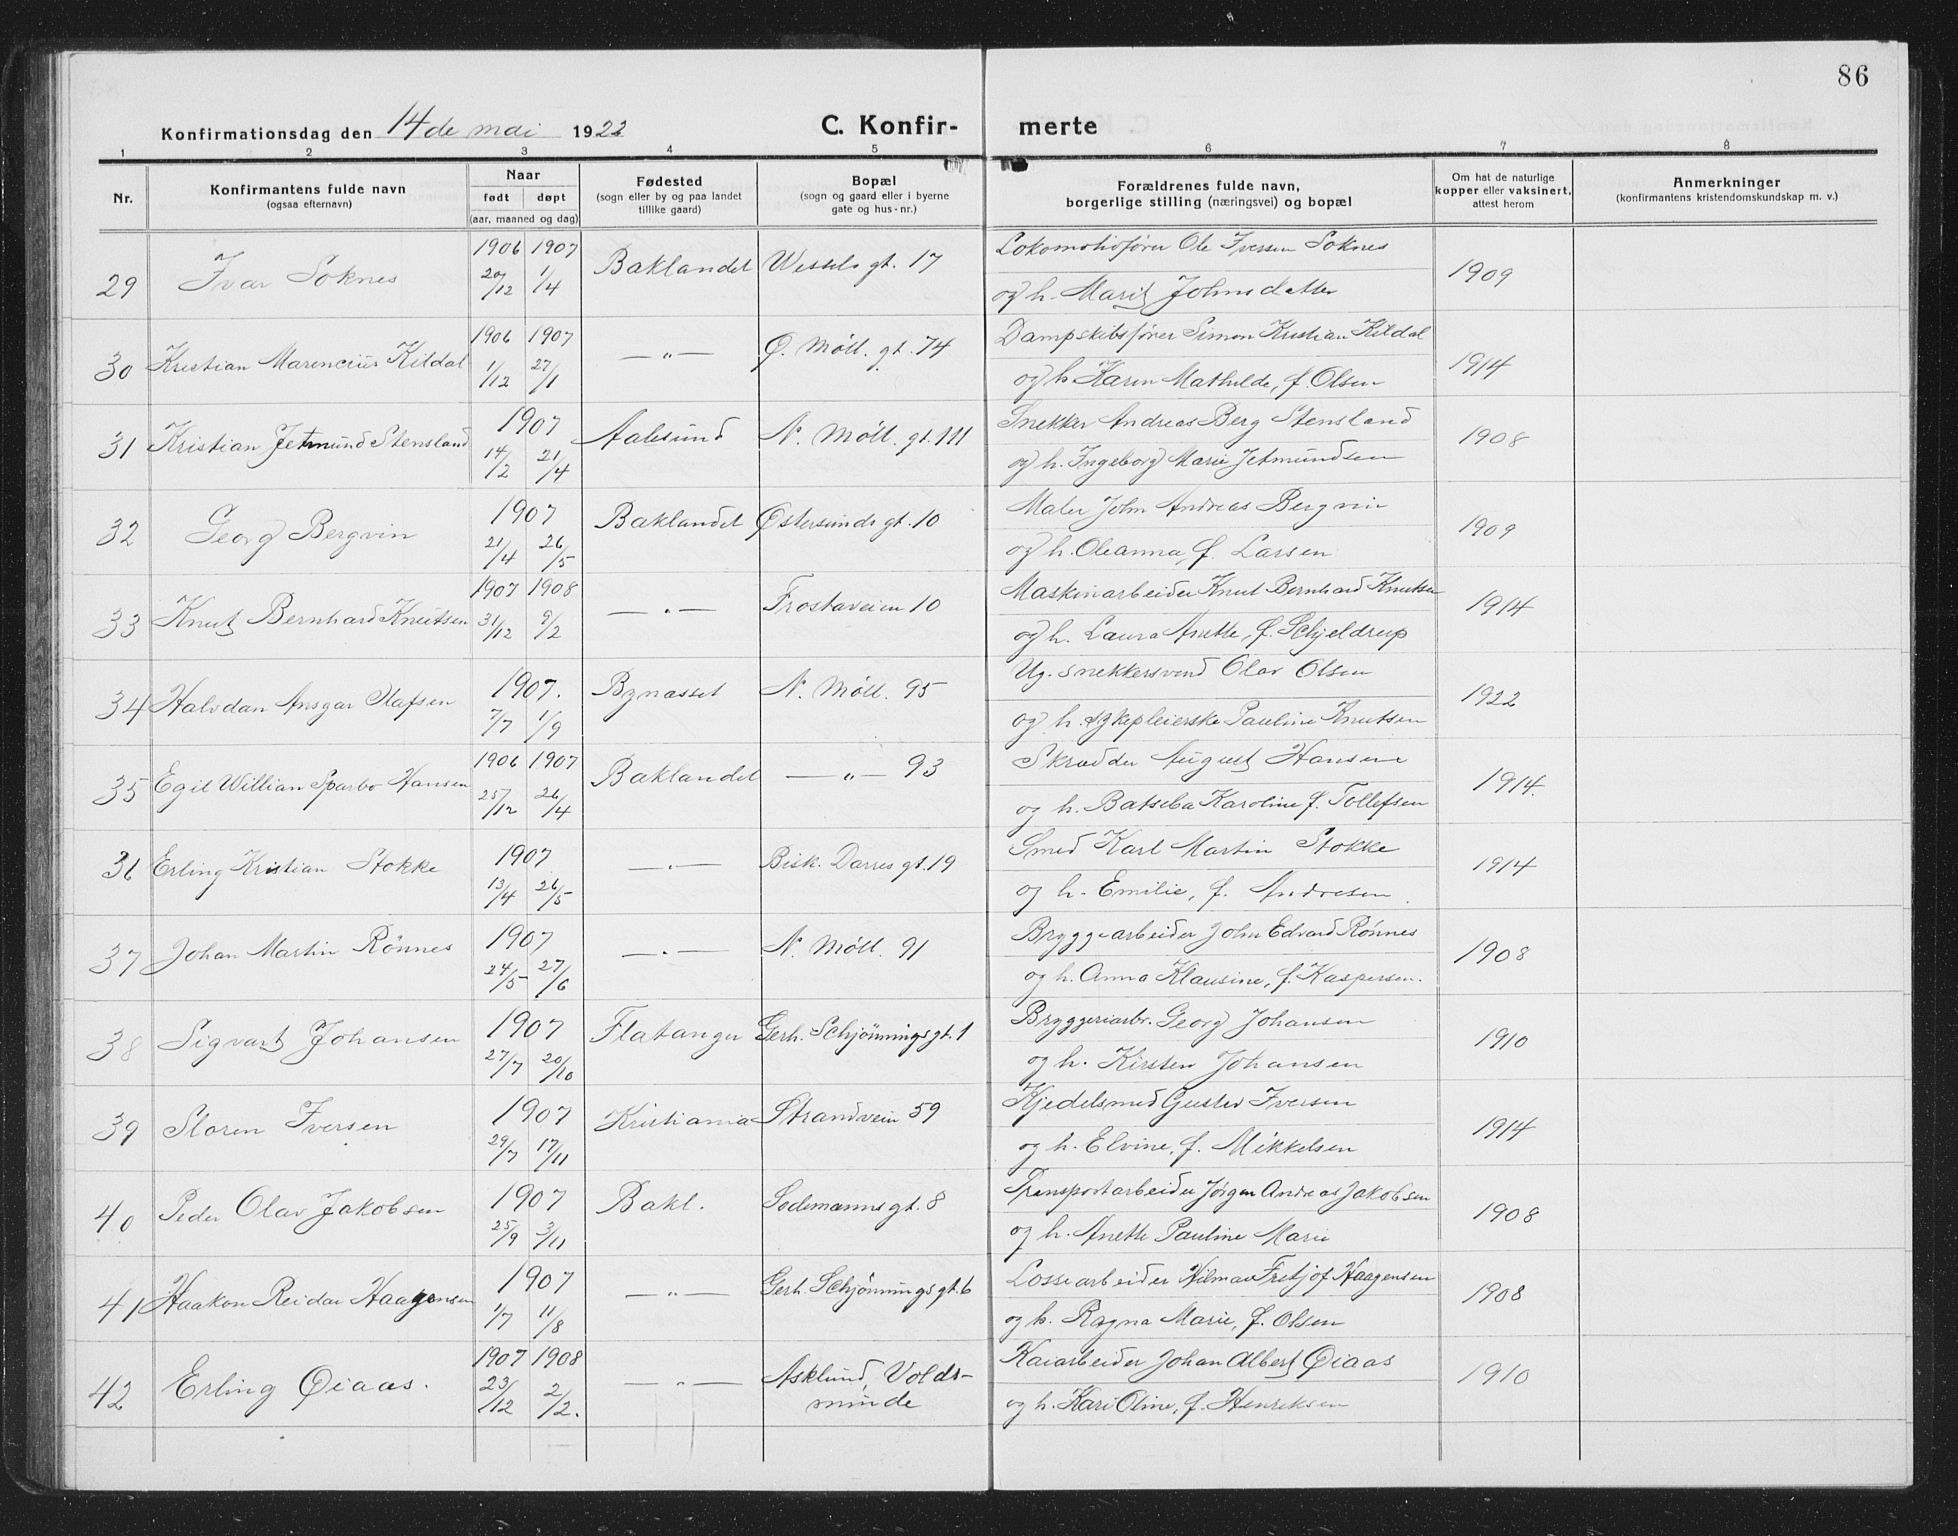 86
Konfirmationsdag den 14de mai 1922 C. Konfir- merte
1 2 3 4 5 6 7 8
Nr. Konfirmantens fulde navn (ogsaa efternavn) Naar født døpt (aar, maaned og dag) Fødested (sogn eller by og paa landet tillike gaard) Bopæl (sogn og gaard eller i byerne gate og hus-nr.) Forældrenes fulde navn, borgerlige stilling (næringsvei) og bopæl Om hat de naturlige kopper eller vaksinert, attest herom Anmerkninger (konfirmantens kristendomskundskap m. v.)
29 Ivar Soknes 1906 20/12 1907 1/4 Baklandet Wessels gt. 17 Lokomotivfører Ole Iversen Soknes 1909
og h. Marit Johnsdatter
30 Kristian Marencius Kildal 1906 1/12 1907 27/1 —„— Ø. Möll. gt. 74 Dampskibsfører Simon Kristian Kildal 1914
og h. Karen Mathilde, f. Olsen
31 Kristian Jetmund Stensland 1907 14/2 21/4 Aalesund N. Möll. gt. 111 Snekker Andreas Berg Stensland 1908
og h. Ingeborg Marie Jetmundsen
32 Georg Bergvin 1907 21/4 26/5 Baklandet Østersunds gt. 10 Maler John Andreas Bergvin 1909
og h. Oleanna, f. Larsen
33 Knut Bernhard Knutsen 1907 31/12 1908 9/2 —„— Frostaveien 10 Maskinarbeider Knut Bernhard Knutsen 1914
og h. Laura Anette, f. Schjeldrup
34 Halvdan Ansgar Olafsen 1907. 7/7 1/9 Bynasset N. Möll. 95 Ug. snekkersvend Olav Olsen 1922
og h. sykepleierske Pauline Knutsen
35 Egil Willian Sparbo Hansen 1906 25/12 1907 26/4 Baklandet —„— 93 Skrædder August Hansen 1914.
og h. Batseba Karoline f. Tollefsen
36 Erling Kristian Stokke 1907 13/4 26/5 —„— Bisk. Darres gt. 19 Smed Karl Martin Stokke 1914
og h. Emilie, f. Andresen
37 Johan Martin Rönnes 1907 24/5 27/6 —„— N. Möll. 91 Bryggearbeider John Edvard Rönnes 1908
og h. Anna Klausine, f. Kaspersen.
38 Sigvart Johansen 1907 27/7 20/10 Flatanger Gerh. Schjønnings gt. 1 Bryggeriarbr. Georg Johansen 1910
og h. Kirsten Johansen
39 Sloren Iversen 1907 29/7 17/11 Kristiania Strandvein 59 Kjedelsmed Gustav Iversen 1914
og h. Elvine, f. Mikkelsen
40 Peder Olav Jakobsen 1907 25/9 3/11 Bakl. Sodemanns gt. 8 Transportarbeider Jørgen Andreas Jakobsen 1908
og h. Anette Pauline Marie
41 Haakon Reidar Haagensen 1907 1/7 11/8 —„— Gerh. Schjönnings gt. 6 Lossearbeider Hilmar Fritjof Haagensen 1908
og h. Ragna Marie, f. Olsen
42 Erling Øiaas. 1907 23/12 1908 2/2. —„— Asklund, Volds- Kaiarbeider Johan Albert Øiaas 1910
minde og h. Kari Oline, f. Henriksen